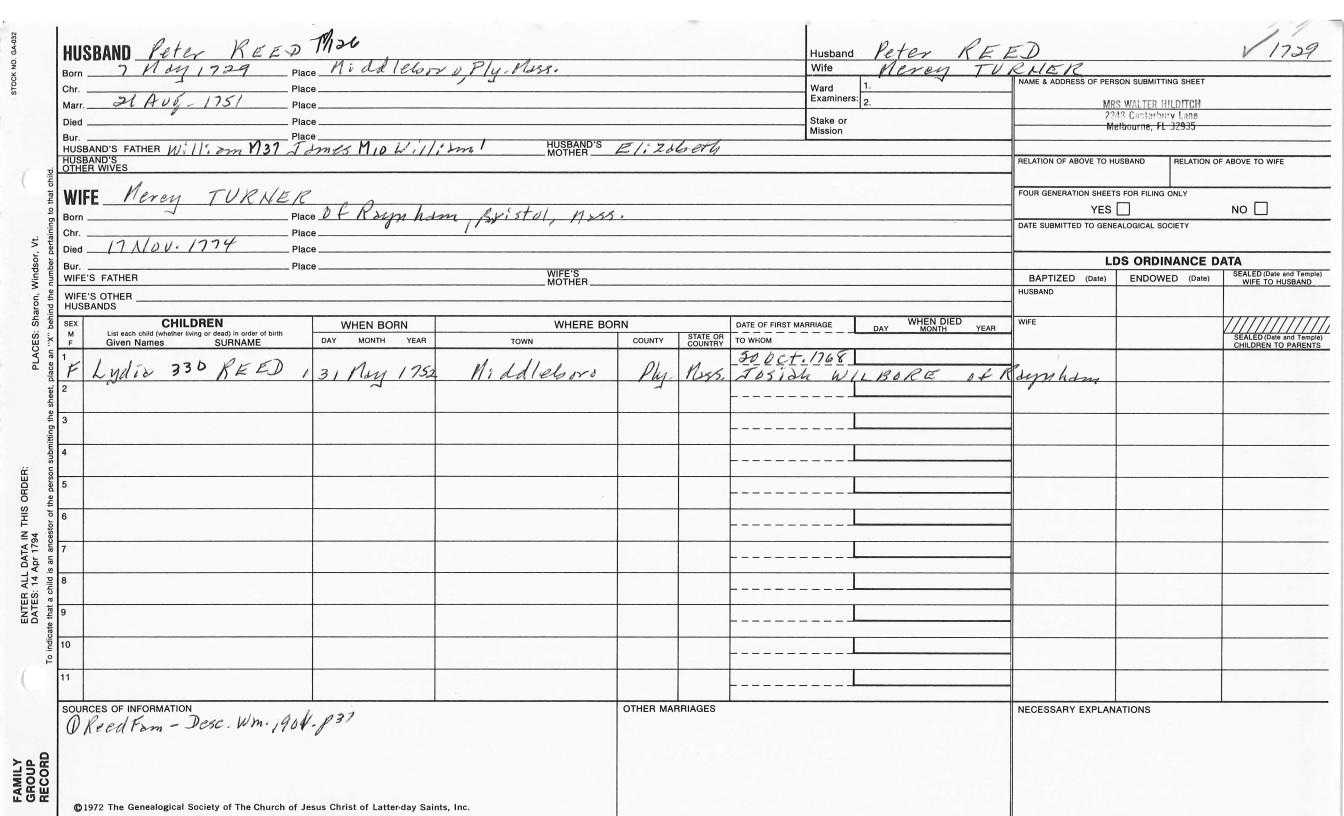 STOCK NO. GA-032
HUSBAND Peter REED M126
Born 7 May 1729 Place Middleboro, Ply. Mass.
Chr. Place
Marr. 21 Aug - 1751 Place
Died Place
Bur. Place
HUSBAND'S FATHER William M37 James M10 William1 HUSBAND'S MOTHER Elizabeth
HUSBAND'S OTHER WIVES
Husband Peter REED ✓1729
Wife Mercy TURNER
Ward Examiners: 1.
2.
Stake or Mission
NAME & ADDRESS OF PERSON SUBMITTING SHEET
MRS WALTER HILDITCH
2343 Canterbury Lane
Melbourne, FL 32935
RELATION OF ABOVE TO HUSBAND RELATION OF ABOVE TO WIFE
FOUR GENERATION SHEETS FOR FILING ONLY
YES NO
DATE SUBMITTED TO GENEALOGICAL SOCIETY
WIFE Mercy TURNER
Born Place Of Raynham, Bristol, Mass.
Chr. Place
Died 17 Nov. 1774 Place
Bur. Place
WIFE'S FATHER WIFE'S MOTHER
WIFE'S OTHER HUSBANDS
LDS ORDINANCE DATA
BAPTIZED (Date) ENDOWED (Date) SEALED (Date and Temple) WIFE TO HUSBAND
HUSBAND
WIFE
SEALED (Date and Temple) CHILDREN TO PARENTS
SEX M F CHILDREN WHEN BORN WHERE BORN DATE OF FIRST MARRIAGE WHEN DIED
List each child (whether living or dead) in order of birth
Given Names SURNAME DAY MONTH YEAR TOWN COUNTY STATE OR COUNTRY TO WHOM DAY MONTH YEAR
1 20 Oct. 1768
F Lydia 330 REED 31 May 1752 Middleboro Ply Mass. Josiah WILBORE of Raynham
2
3
4
5
6
7
8
9
10
11
SOURCES OF INFORMATION OTHER MARRIAGES NECESSARY EXPLANATIONS
① Reed Fam - Desc. Wm. 1901. p37
©1972 The Genealogical Society of The Church of Jesus Christ of Latter-day Saints, Inc.
FAMILY GROUP RECORD
ENTER ALL DATA IN THIS ORDER:
DATES: 14 Apr 1794 PLACES: Sharon, Windsor, Vt.
To indicate that a child is an ancestor of the person submitting the sheet, place an "X" behind the number pertaining to that child.